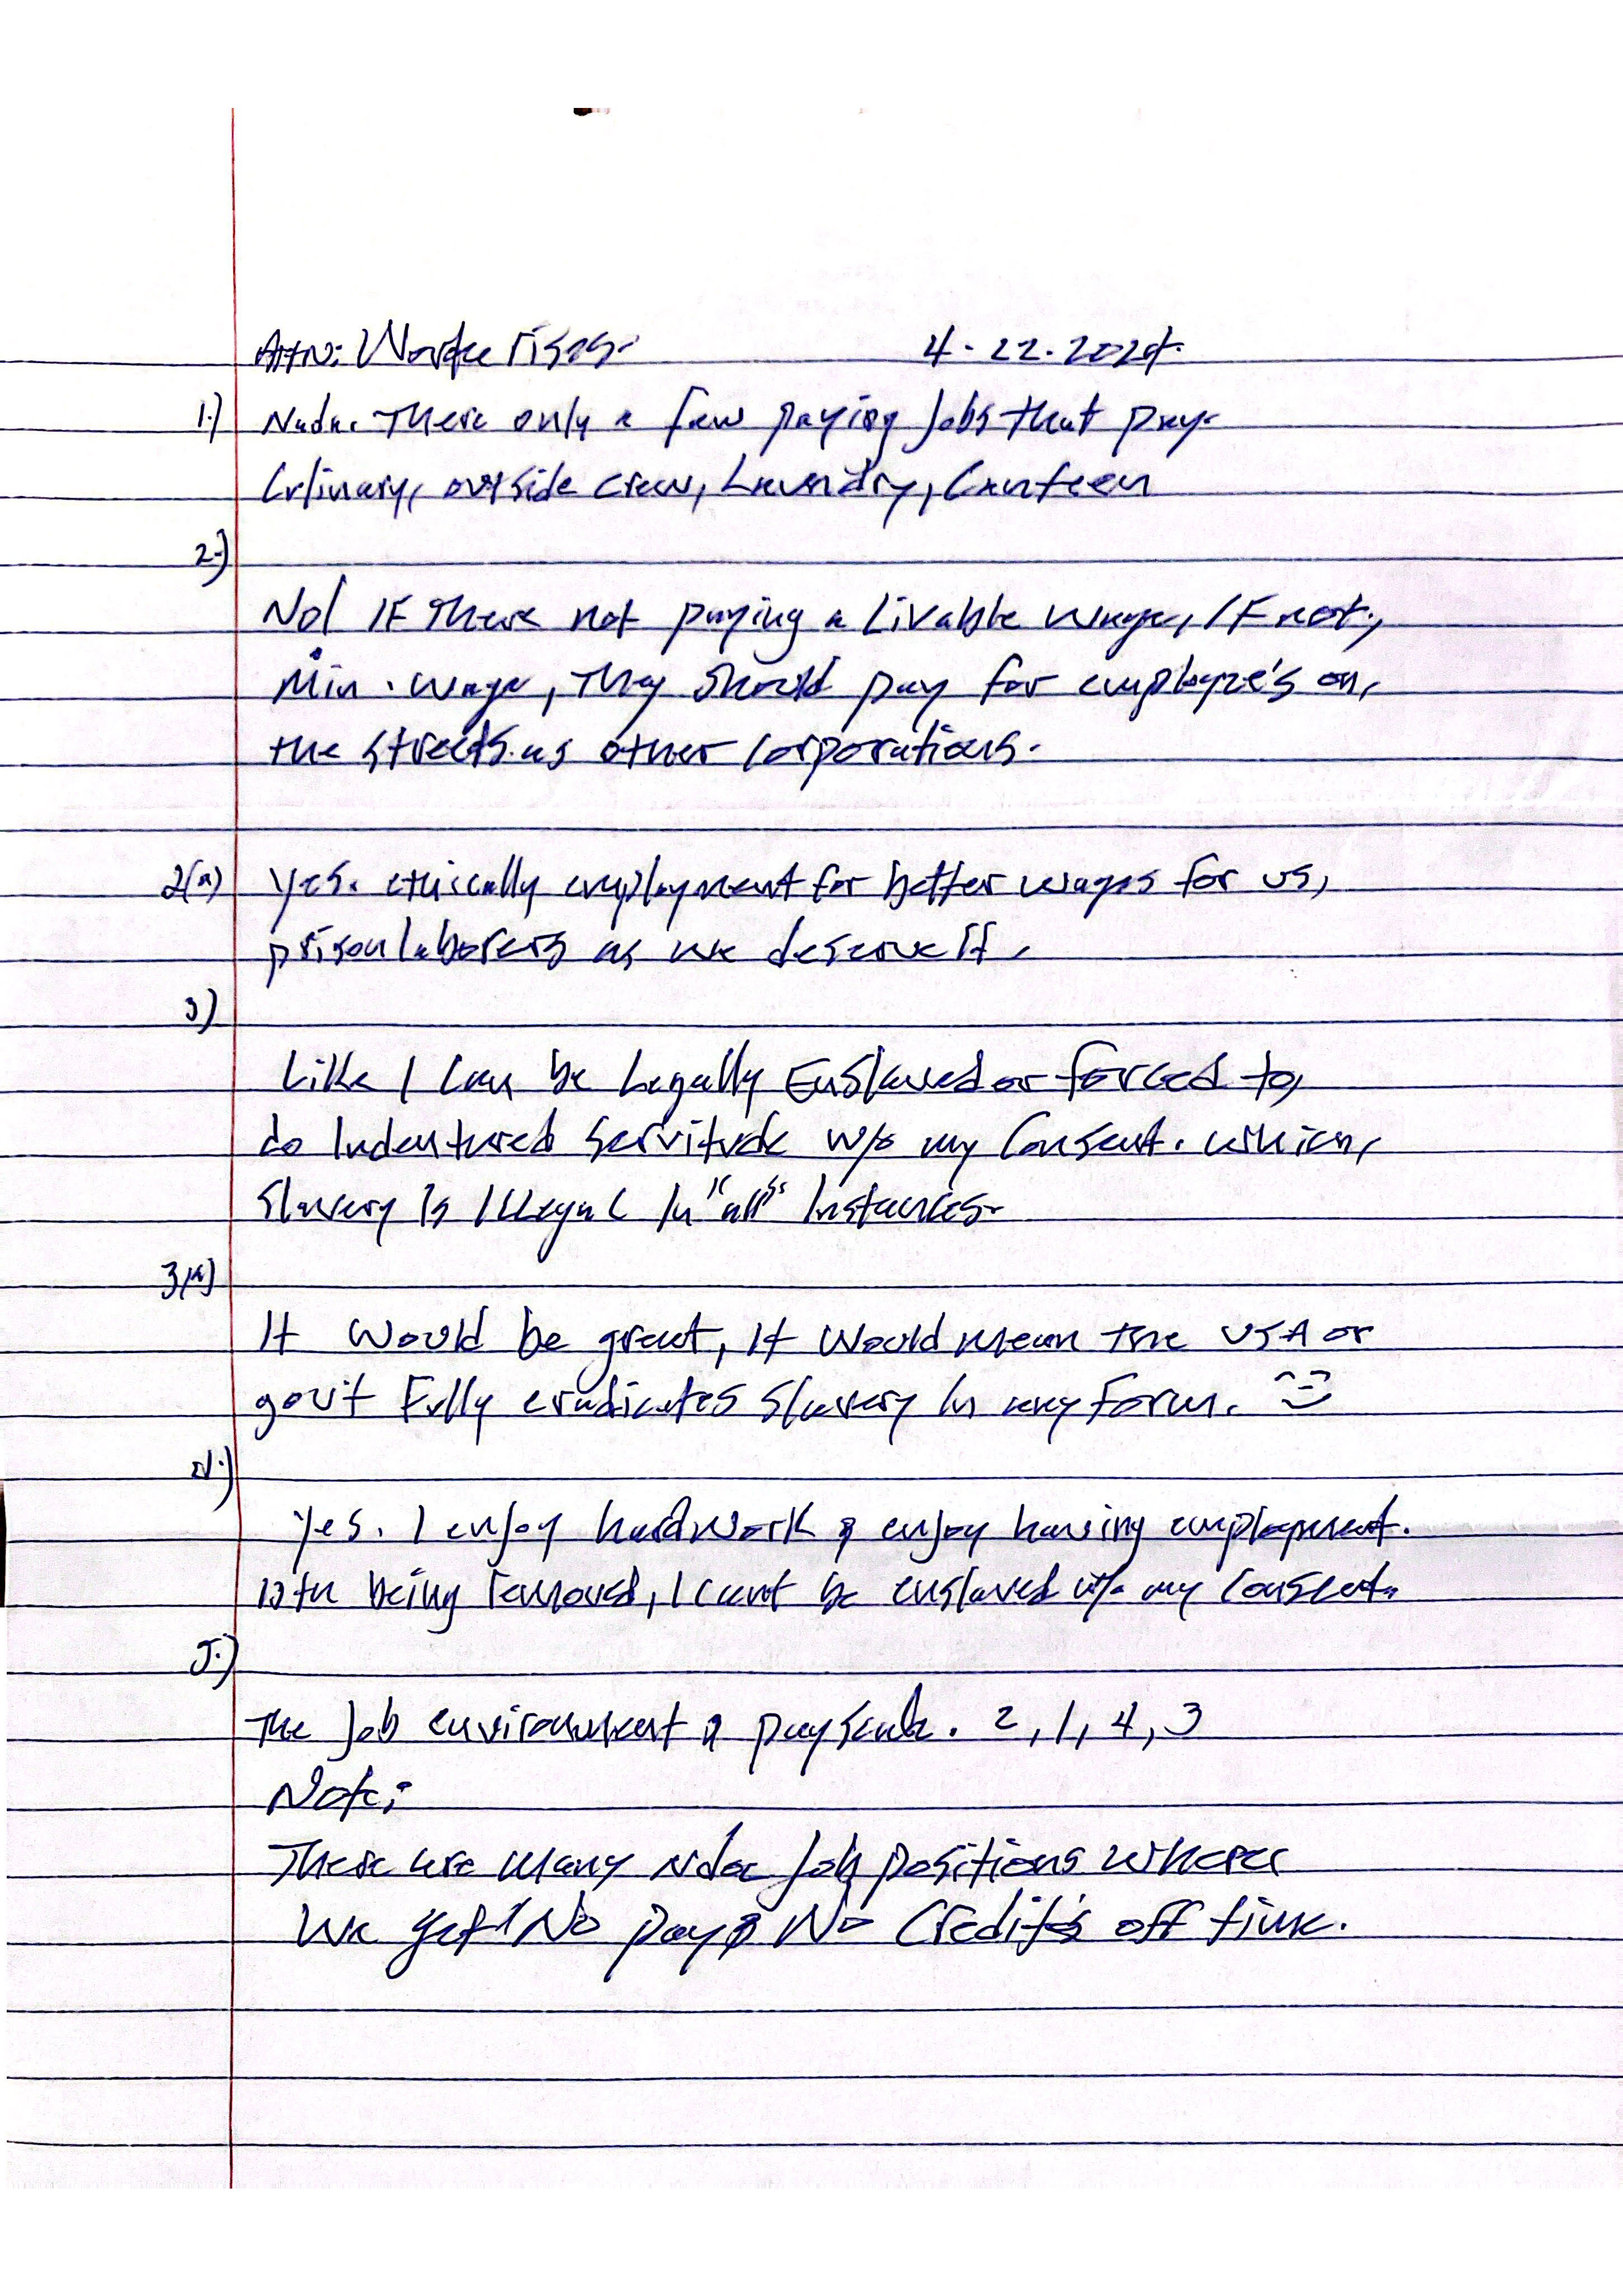 Attn: Worth rises. 4.22.2024.
1.) Nada. There only a few paying jobs that pay.
Culinary, outside crew, Laundry, Canteen
2.)
No! IF There not paying a Livable wage, IF not,
Min. wage, They should pay for employee's on,
the streets. as other corporations.
2(a) Yes. ethically employment for better wages for us,
prison laborers as we deserve it.
3)
Like I can be Legally Enslaved or forced to,
do Indentured Servitude w/o my Consent. which,
Slavery is ILLegal In "all" Instances.
3(a)
It would be great, It would mean the USA or
gov't Fully eradicates slavery in any form.
4.)
Yes. I enjoy hardwork & enjoy having employment.
13th being removed, I cant be enslaved w/o my consent.
5.)
The job environment & payscale. 2, 1, 4, 3
Note:
There are many Ndoc Job positions where
We get No pay & No Credit's off time.